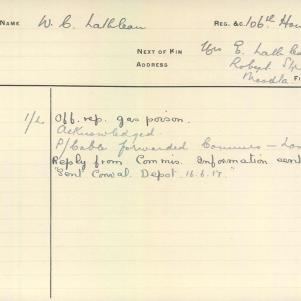 NAME W. C. Lathlean REG. &C. 106th How
NEXT OF KIN Mrs E. Lath
ADDRESS Robert St
Moonta
1/6 Off. rep. gas poison.
Acknowledged.
P/Cable forwarded Commis —
Reply from Commis. Information sent
"Sent Conval. Depot. 16.6.17."